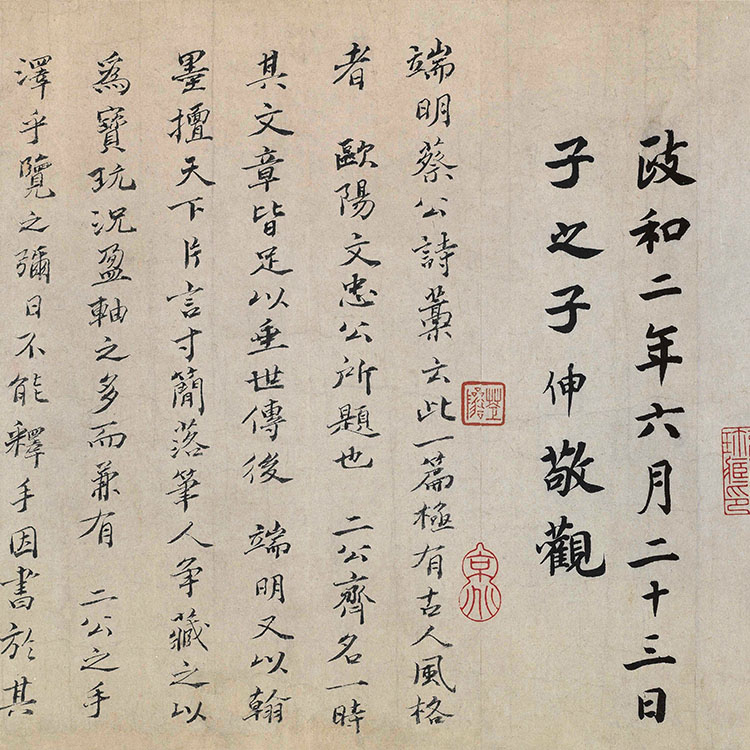 政和二年六月二十三日
子之子伸敬觀
端明蔡公詩藁云此一篇極有古人風格
者 歐陽文忠公所題也 二公齊名一時
其文章皆足以垂世傳後 端明又以翰
墨擅天下片言寸簡落筆人爭藏之以
為寶玩況盈軸之多而兼有 二公之手
澤乎覽之彌日不能釋手因書於其